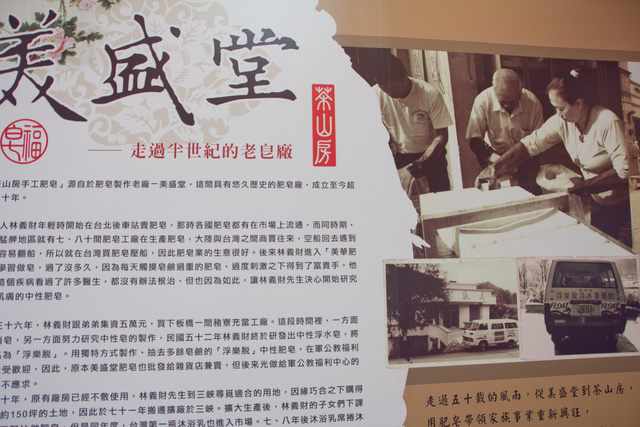 美盛堂
茶山房
皂福
走過半世紀的老皂廠
山房手工肥皂」源自於肥皂製作老廠－美盛堂，這間具有悠久歷史的肥皂廠，成立至今超
十年。
人林義財年輕時開始在台北後車站賣肥皂，那時各國肥皂都有在市場上流通，而同時期，
艋舺地區就有七、八十間肥皂工廠在生產肥皂，大陸與台灣之間商賈往來，空船回去遇到
容易翻船，所以就在台灣買肥皂壓船，因此肥皂業的生意很好。後來林義財進入「美華肥
學習做皂，過了沒多久，因為每天觸摸皂鹼過重的肥皂，過度刺激之下得到了富貴手，他
這個疾病看過了許多醫生，都沒有辦法根治，但也因為如此，讓林義財先生決心開始研究
肌膚的中性肥皂。
三十六年，林義財跟弟弟集資五萬元，買下板橋一間豬寮充當工廠。這段時間裡，一方面
皂，另一方面努力研究中性的皂，民國五十二年林義財終於研發出中性浮水皂，將
名為「浮樂脫」。用獨特方式製作，抽去多餘皂鹼的「浮樂脫」中性肥皂，在軍公教福利
受歡迎，因此，原本美盛堂肥皂也批發給雜貨店兼賣，但後來光做給公教福利中心的
不應求。
十年，原有廠房已經不敷使用，林義財先生到三峽尋覓適合的用地，因緣巧合之下購得
約150坪的土地，因此於七十一年搬遷擴廠於三峽。擴大生產後，林義財的子女們下課
但是同年度，台灣第一瓶沐浴乳也進入市場。七、八年後沐浴乳席捲沐
走過五十載的風雨，從美盛堂到茶山房，
用肥皂帶領家族事業重新興旺，